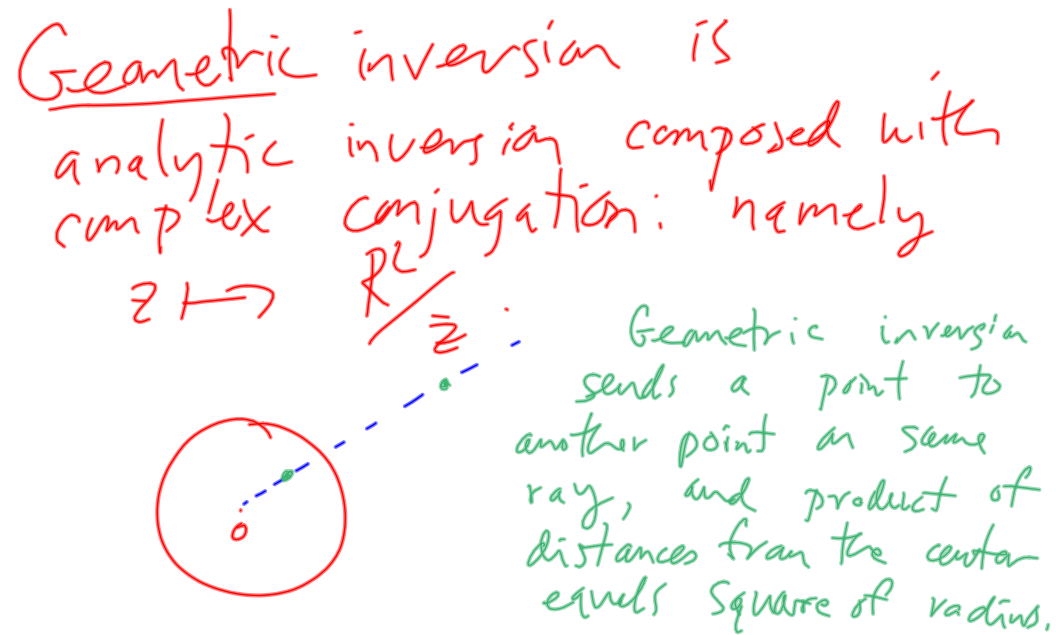 Geometric inversion is
analytic inversion composed with
complex conjugation: namely
z ↦ R²/z̄
Geometric inversion
sends a point to
another point on same
ray, and product of
distances from the center
equals square of radius.
0